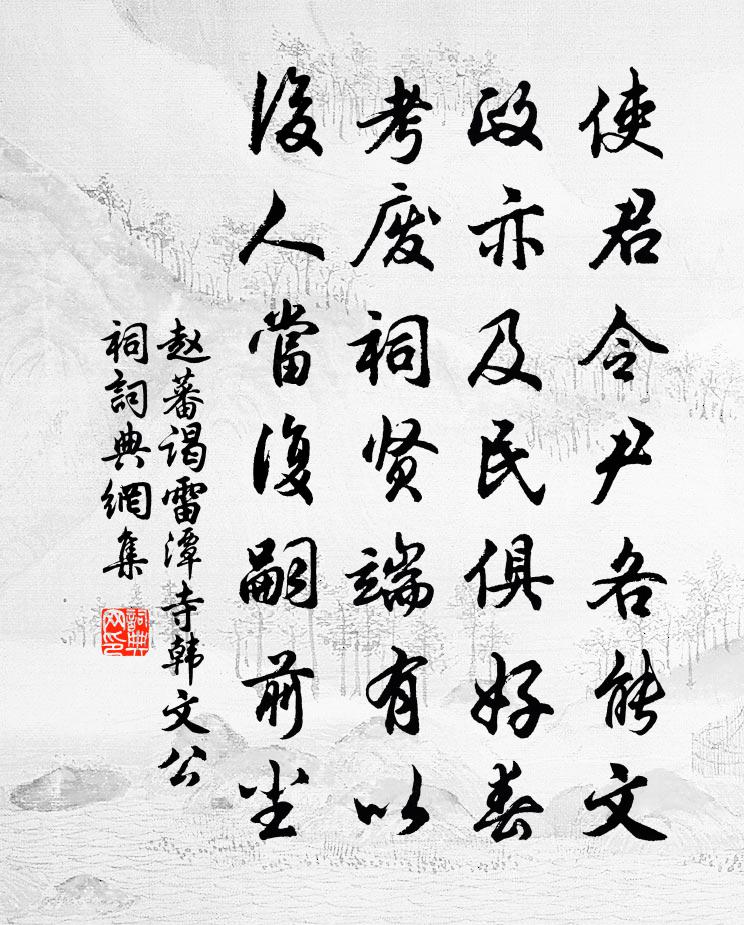 使君令尹各能文
政亦及民俱好春
考废祠贤端有以
後人當復嗣前尘
赵蕃谒雷潭寺韩文公
祠詞典網集
詞典网印